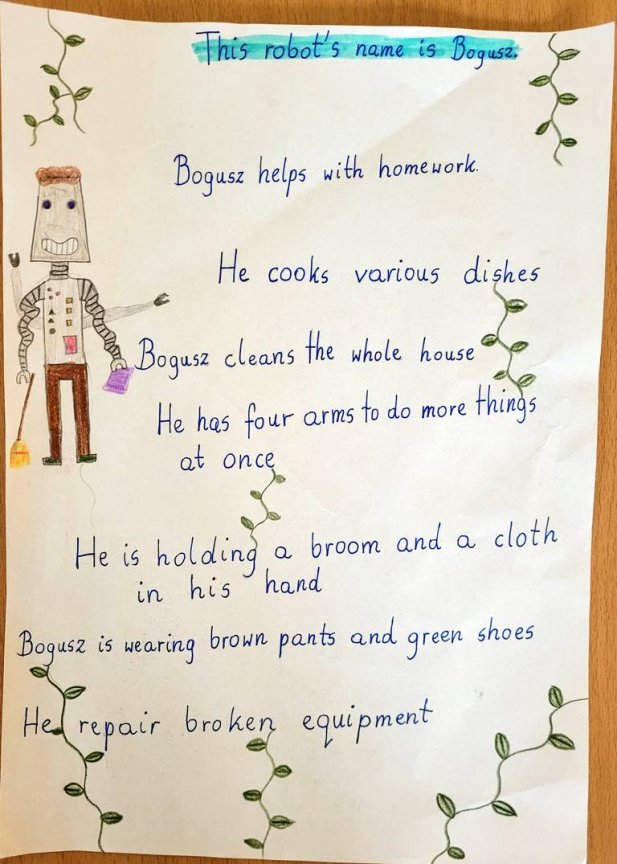 This robot's name is Bogusz.
Bogusz helps with homework.
He cooks various dishes
Bogusz cleans the whole house
He has four arms to do more things
at once
He is holding a broom and a cloth
in his hand
Bogusz is wearing brown pants and green shoes
He repair broken equipment